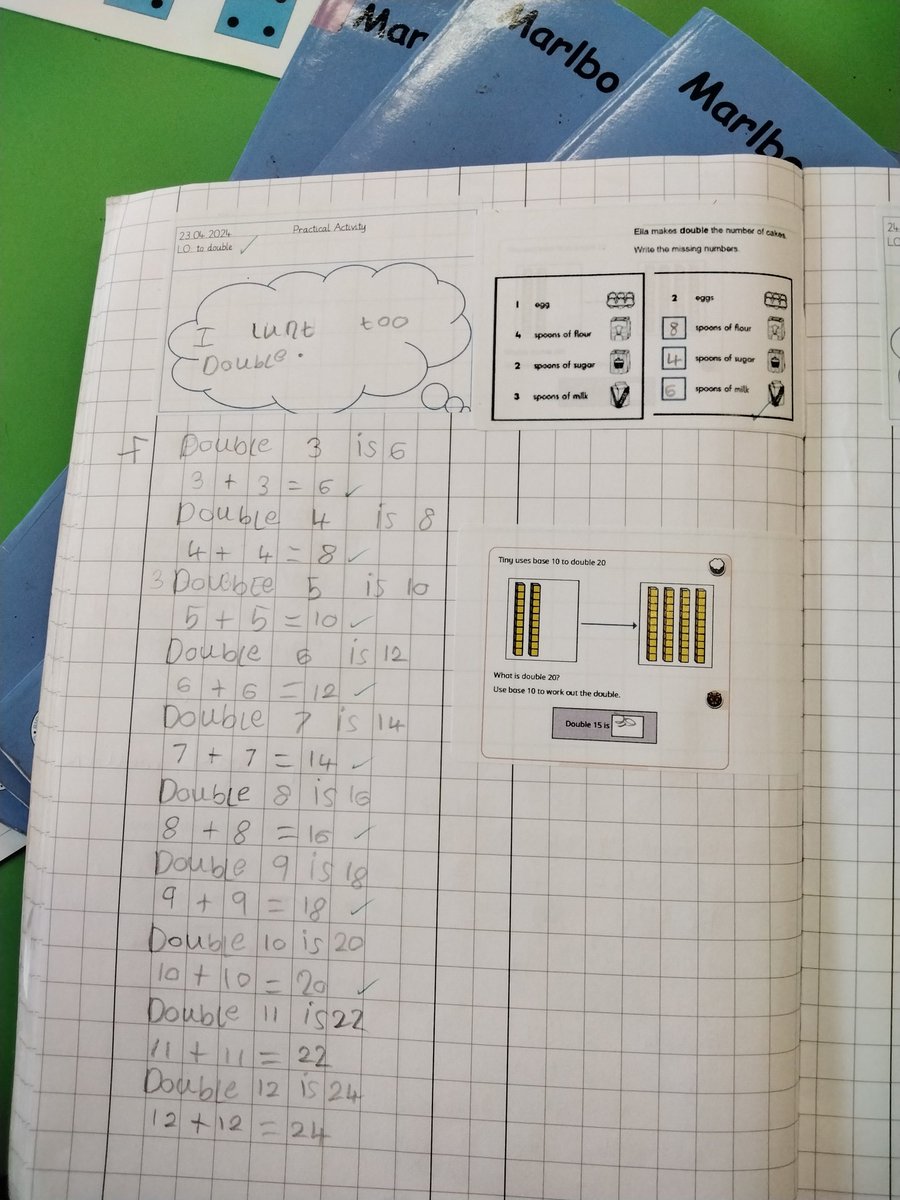 Mar
Marlbo
Marlbo
23.04.2024
Practical Activity
LO: to double
I lunt too
Double.
Ella makes double the number of cakes.
Write the missing numbers.
1 egg
4 spoons of flour
2 spoons of sugar
3 spoons of milk
2 eggs
8 spoons of flour
4 spoons of sugar
6 spoons of milk
Double 3 is 6
3 + 3 = 6
Double 4 is 8
4 + 4 = 8
3 Double 5 is 10
5 + 5 = 10
Double 6 is 12
6 + 6 = 12
Double 7 is 14
7 + 7 = 14
Double 8 is 16
8 + 8 = 16
Double 9 is 18
9 + 9 = 18
Double 10 is 20
10 + 10 = 20
Double 11 is 22
11 + 11 = 22
Double 12 is 24
12 + 12 = 24
Tiny uses base 10 to double 20
What is double 20?
Use base 10 to work out the double.
Double 15 is 30
24
LO